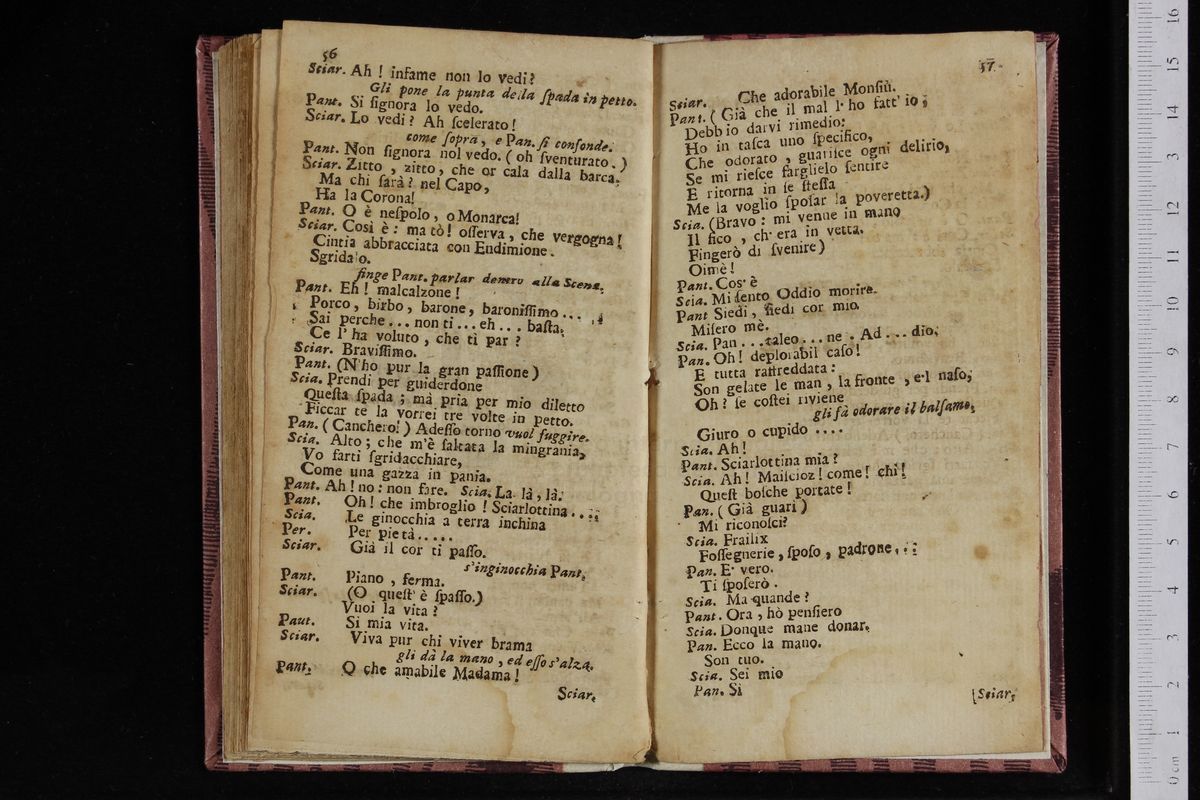 56
Sciar. Ah ! infame non lo vedi?
Gli pone la punta della ſpada in petto.
Pant. Si ſignora lo vedo.
Sciar. Lo vedi? Ah ſcelerato!
come ſopra, e Pan. ſi confonde.
Pant. Non ſignora nol vedo. ( oh ſventurato. )
Sciar. Zitto , zitto, che or cala dalla barca.
Ma chi ſarà? nel Capo,
Ha la Corona!
Pant. O è neſpolo, o Monarca!
Sciar. Così è: ma tò! oſſerva, che vergogna!
Cintia abbracciata con Endimione.
Sgridalo.
finge Pant. parlar dentro alla Scena.
Pant. Eh! malcalzone!
Porco, birbo, barone, baroniſſimo...
Sai perche... non ti... eh... baſta.
Ce l' ha voluto , che ti par ?
Sciar. Braviſſimo.
Pant. (N'ho pur la gran paſſione )
Scia. Prendi per guiderdone
Queſta ſpada ; mà pria per mio diletto
Ficcar te la vorrei tre volte in petto.
Pan. ( Canchero! ) Adeſſo torno vuol fuggire.
Scia. Alto; che m'è ſaltata la mingrania,
Vo farti ſgridacchiare,
Come una gazza in pania.
Pant. Ah! no: non fare. Scia. La. là, là.
Pant. Oh! che imbroglio! Sciarlottina....
Scia. Le ginocchia a terra inchina
Per. Per pietà.....
Sciar. Già il cor ti paſſo.
s'inginocchia Pant.
Pant. Piano , ferma.
Sciar. (O queſt' è ſpaſſo.)
Vuoi la vita ?
Paut. Si mia vita.
Sciar. Viva pur chi viver brama
gli dà la mano , ed eſſo s'alza.
Pant. O che amabile Madama!
Sciar.
57
Sciar. Che adorabile Monſiù.
Pant. ( Già che il mal l' ho fatt' io ;
Debb io darvi rimedio:
Ho in taſca uno ſpecifico,
Che odorato , guariſce ogni delirio,
Se mi rieſce farglielo ſentire
E ritorna in ſe ſteſſa
Me la voglio ſpoſar la poveretta.)
Scia. (Bravo: mi venne in mano
Il fico , ch' era in vetta.
Fingerò di ſvenire)
Oimè!
Pant. Cos' è
Scia. Mi ſento Oddio morire.
Pant Siedi, ſiedi cor mio.
Miſero mè.
Scia. Pan...taleo...ne. Ad...dio.
Pan. Oh! deplorabil caſo!
E tutta raffreddata:
Son gelate le man , la fronte , e'l naſo,
Oh? ſe coſtei riviene
gli fà odorare il balſamo.
Giuro o cupido ....
Scia. Ah!
Pant. Sciarlottina mia?
Scia. Ah! Maiſcioz! come! chi!
Queſt boſche portate!
Pan. ( Già guari )
Mi riconoſci?
Scia. Frailix
Foſſegnerie, ſpoſo, padrone...
Pan. E' vero.
Ti ſpoſerò.
Scia. Ma quande ?
Pant. Ora , hò penſiero
Scia. Donque mane donar.
Pan. Ecco la mano.
Son tuo.
Scia. Sei mio
Pan. Sì
[Sciar,